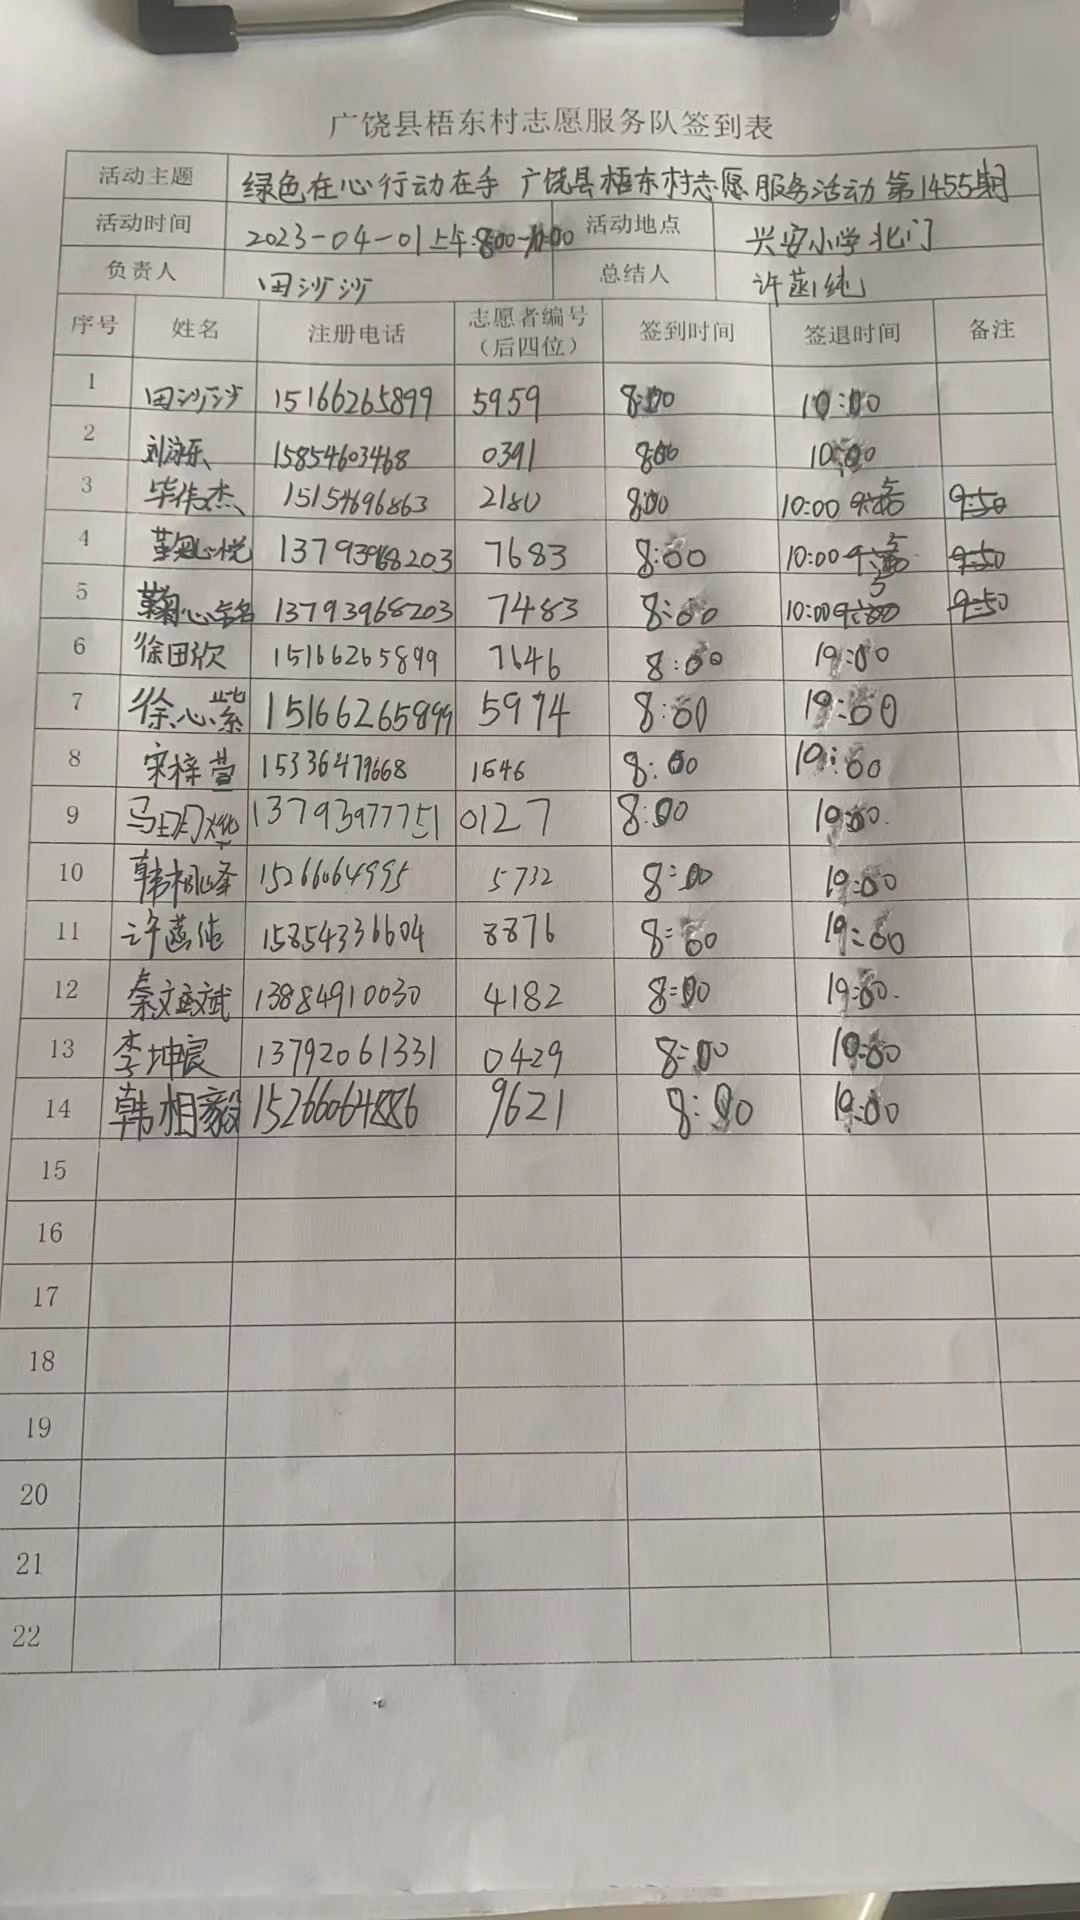 广饶县梧东村志愿服务队签到表
活动主题 绿色在心行动在手 广饶县梧东村志愿服务活动 第1455期
活动时间 2023-04-01上午:8:00-10:00 活动地点 兴安小学北门
负责人 田沙沙 总结人 许菡纯
序号 姓名 注册电话 志愿者编号（后四位） 签到时间 签退时间 备注
1 田沙沙 15166265899 5959 8:00 10:00
2 刘泳乐 15854603468 0391 8:00 10:00
3 毕伟杰 15154696863 2180 8:00 10:00 9:50
4 鞠心悦 13793968203 7683 8:00 10:00 9:50
5 鞠心 13793968203 7483 8:00 10:00 9:50
6 徐田欣 15166265899 7646 8:00 10:00
7 徐心紫 15166265899 5974 8:00 10:00
8 宋梓萱 15336479668 1546 8:00 10:00
9 马玥烨 13793977751 0127 8:00 10:00
10 韩相峰 15266064995 5732 8:00 10:00
11 许菡纯 15854336604 8876 8:00 10:00
12 秦文斌 13884910030 4182 8:00 10:00
13 李坤宸 13792061331 0429 8:00 10:00
14 韩相毅 15266064886 9621 8:00 10:00
15
16
17
18
19
20
21
22